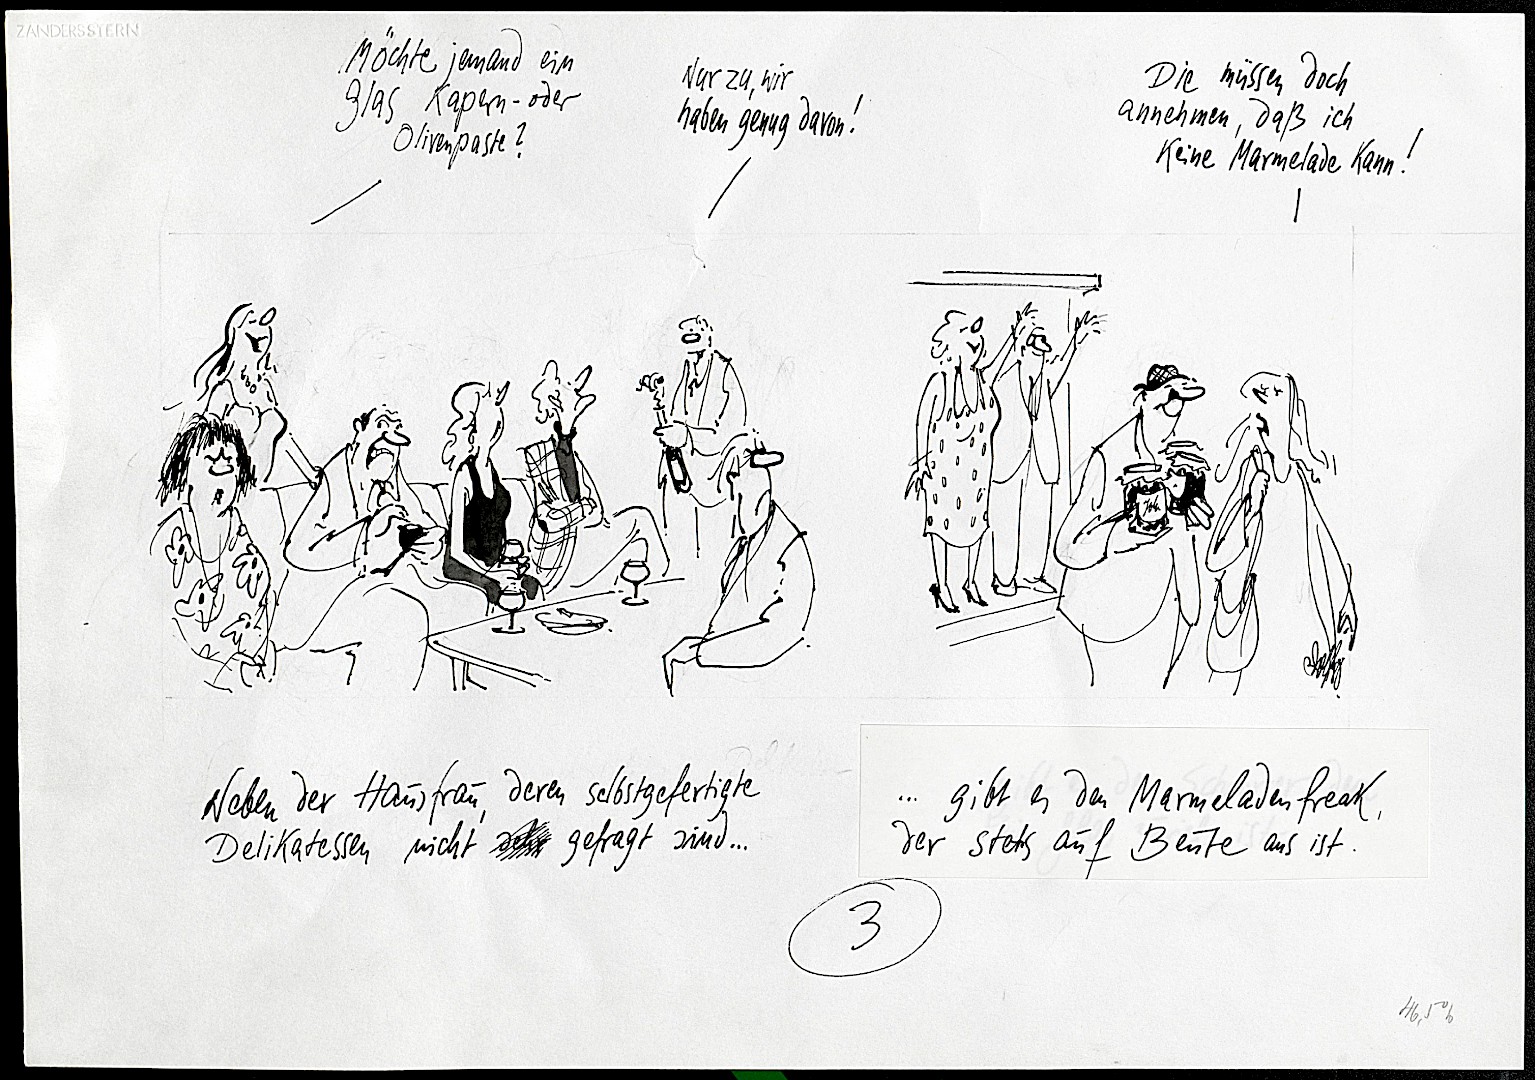 ZANDERSSTERN
Möchte jemand ein
Glas Kapern- oder
Olivenpaste?
Nur zu, wir
haben genug davon!
Die müssen doch
annehmen, daß ich
keine Marmelade kann!
Neben der Hausfrau, deren selbstgefertigte
Delikatessen nicht gefragt sind...
... gibt es den Marmeladenfreak,
der stets auf Beute aus ist.
3
46,5%